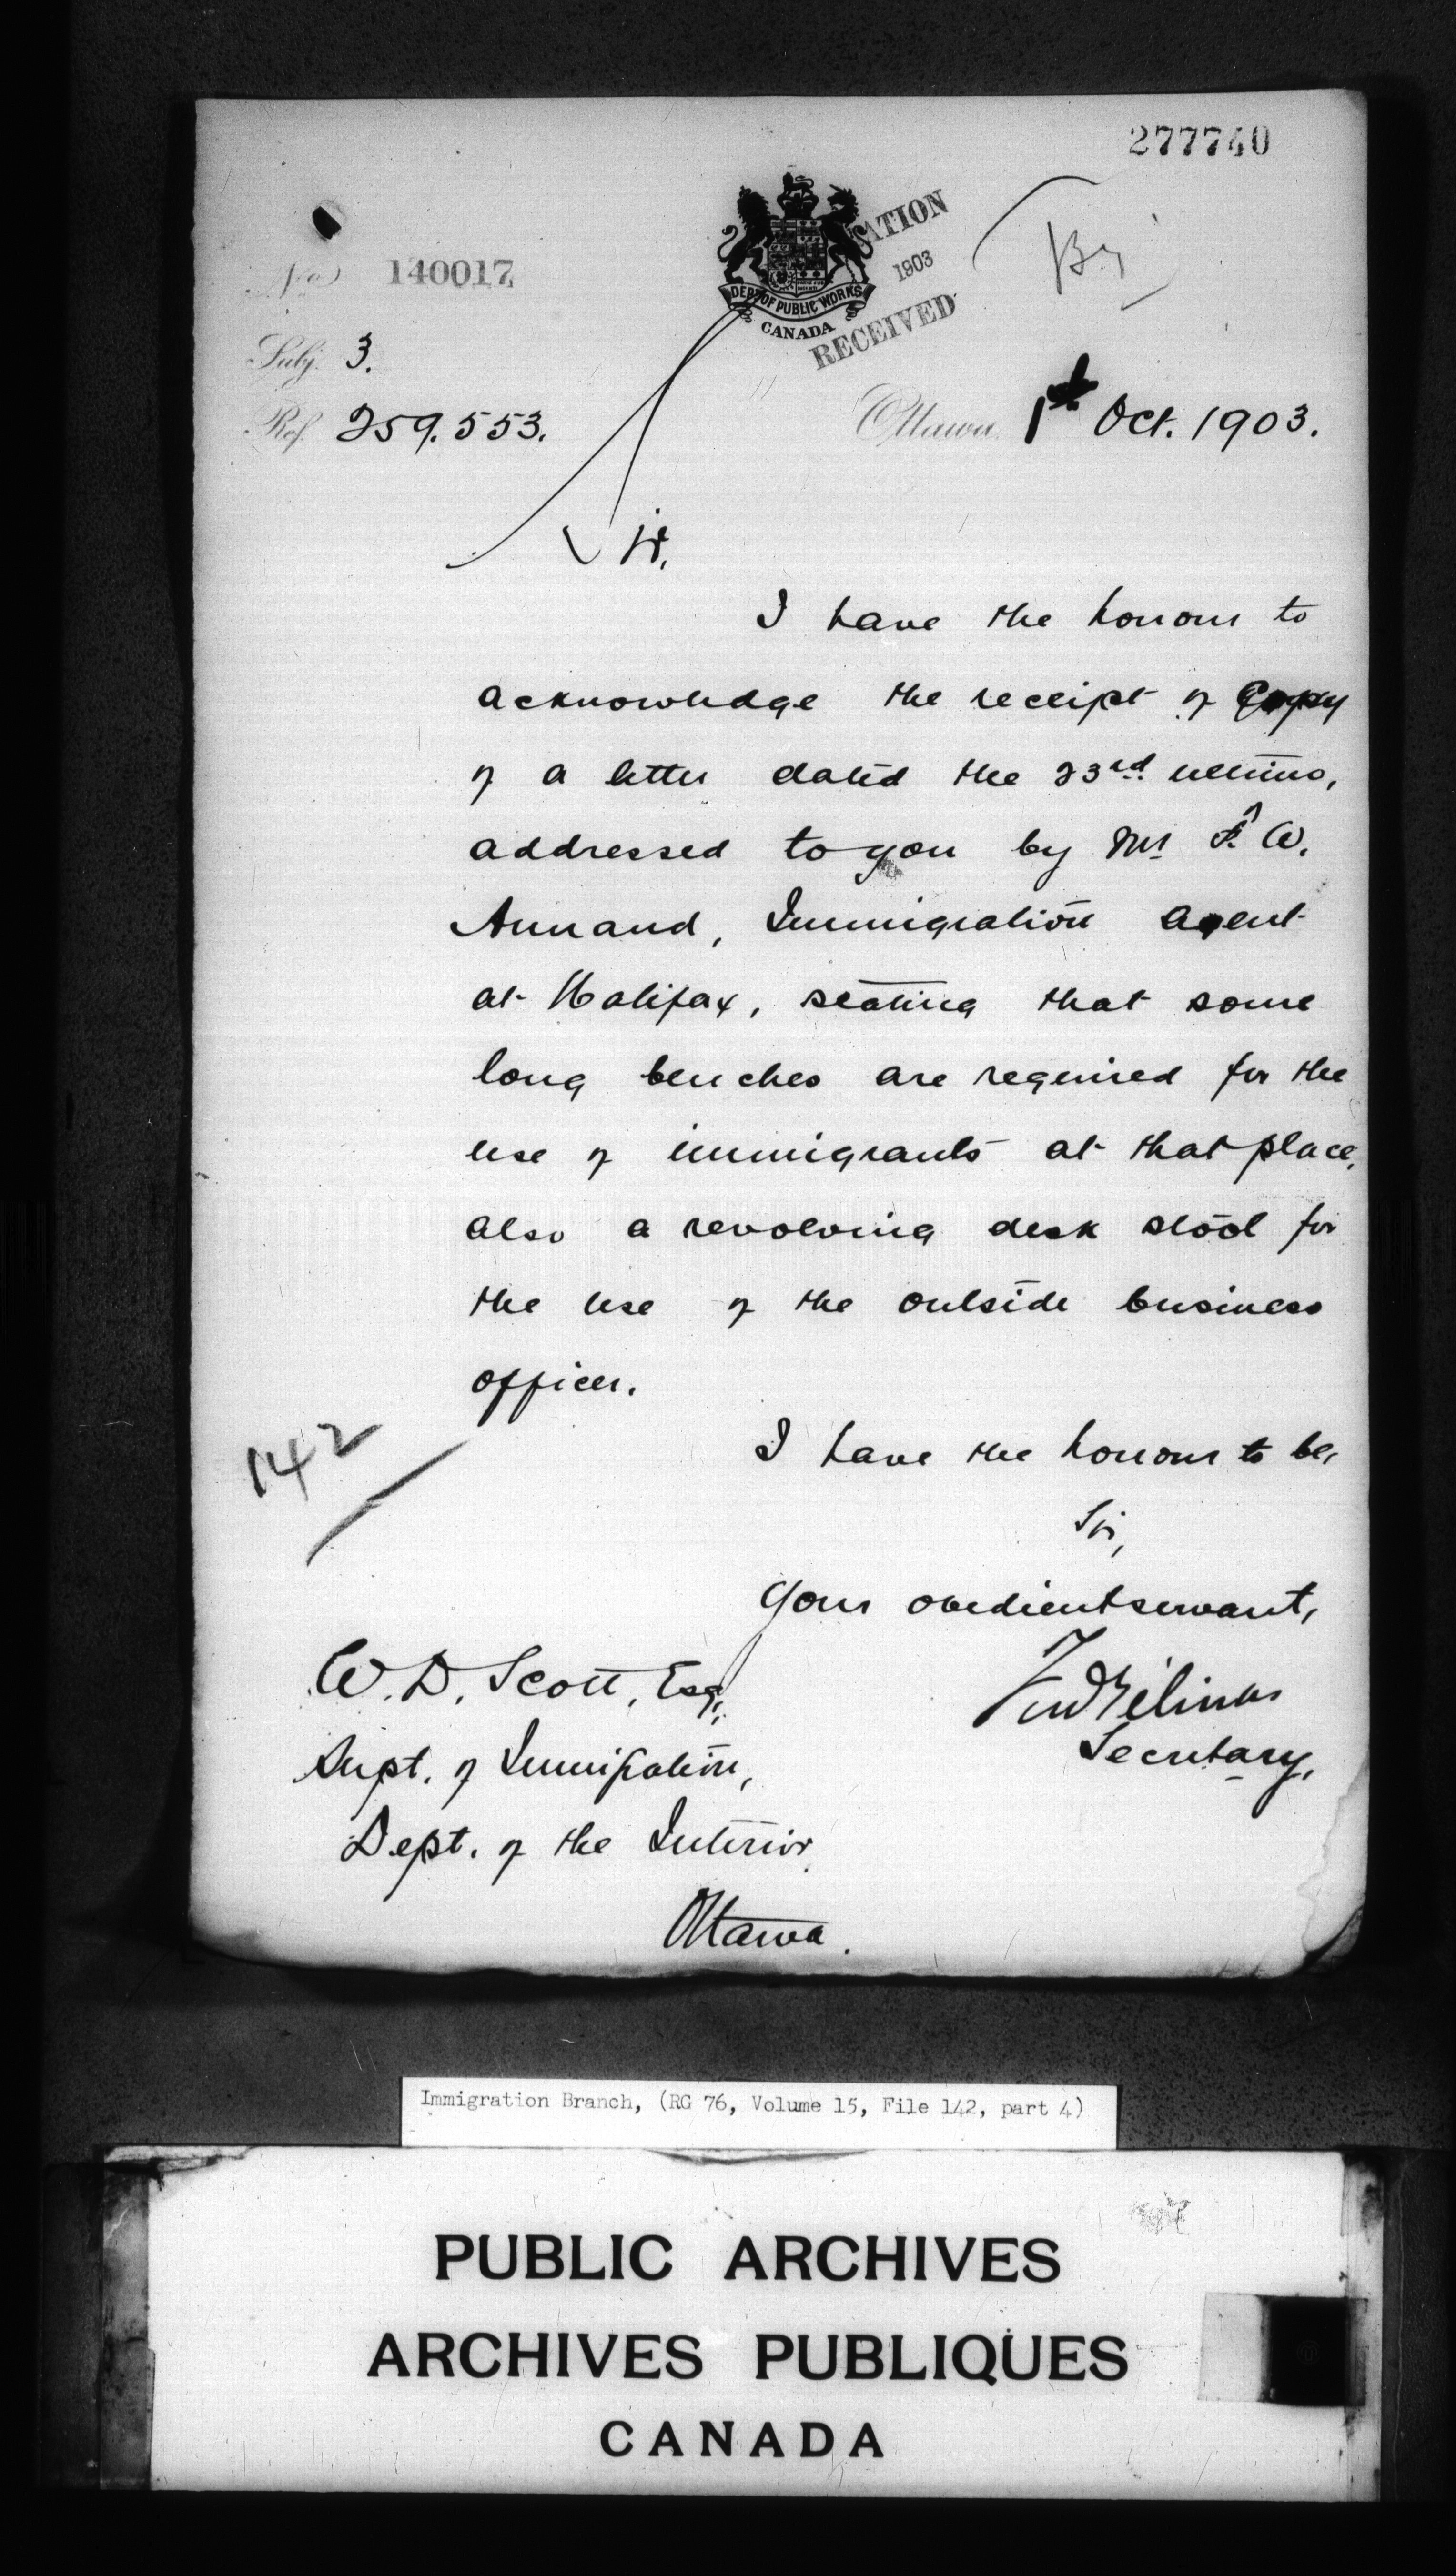 277740
No 140017
DEPT OF PUBLIC WORKS
CANADA
ATION
1903
RECEIVED
Subj. 3.
Ref. 259.553.
Ottawa 1st Oct. 1903.
Sir,
I have the honour to
acknowledge the receipt of Copy
of a letter dated the 23rd ultimo,
addressed to you by Mr F. W.
Annand, Immigration Agent
at Halifax, stating that some
long benches are required for the
use of immigrants at that place,
also a revolving desk stool for
the use of the outside business
officer.
142
I have the honour to be,
Sir,
Your obedient servant,
Fred Gélinas
Secretary,
W. D. Scott, Esq.,
Supt. of Immigration,
Dept. of the Interior,
Ottawa.
Immigration Branch, (RG 76, Volume 15, File 142, part 4)
PUBLIC ARCHIVES
ARCHIVES PUBLIQUES
CANADA